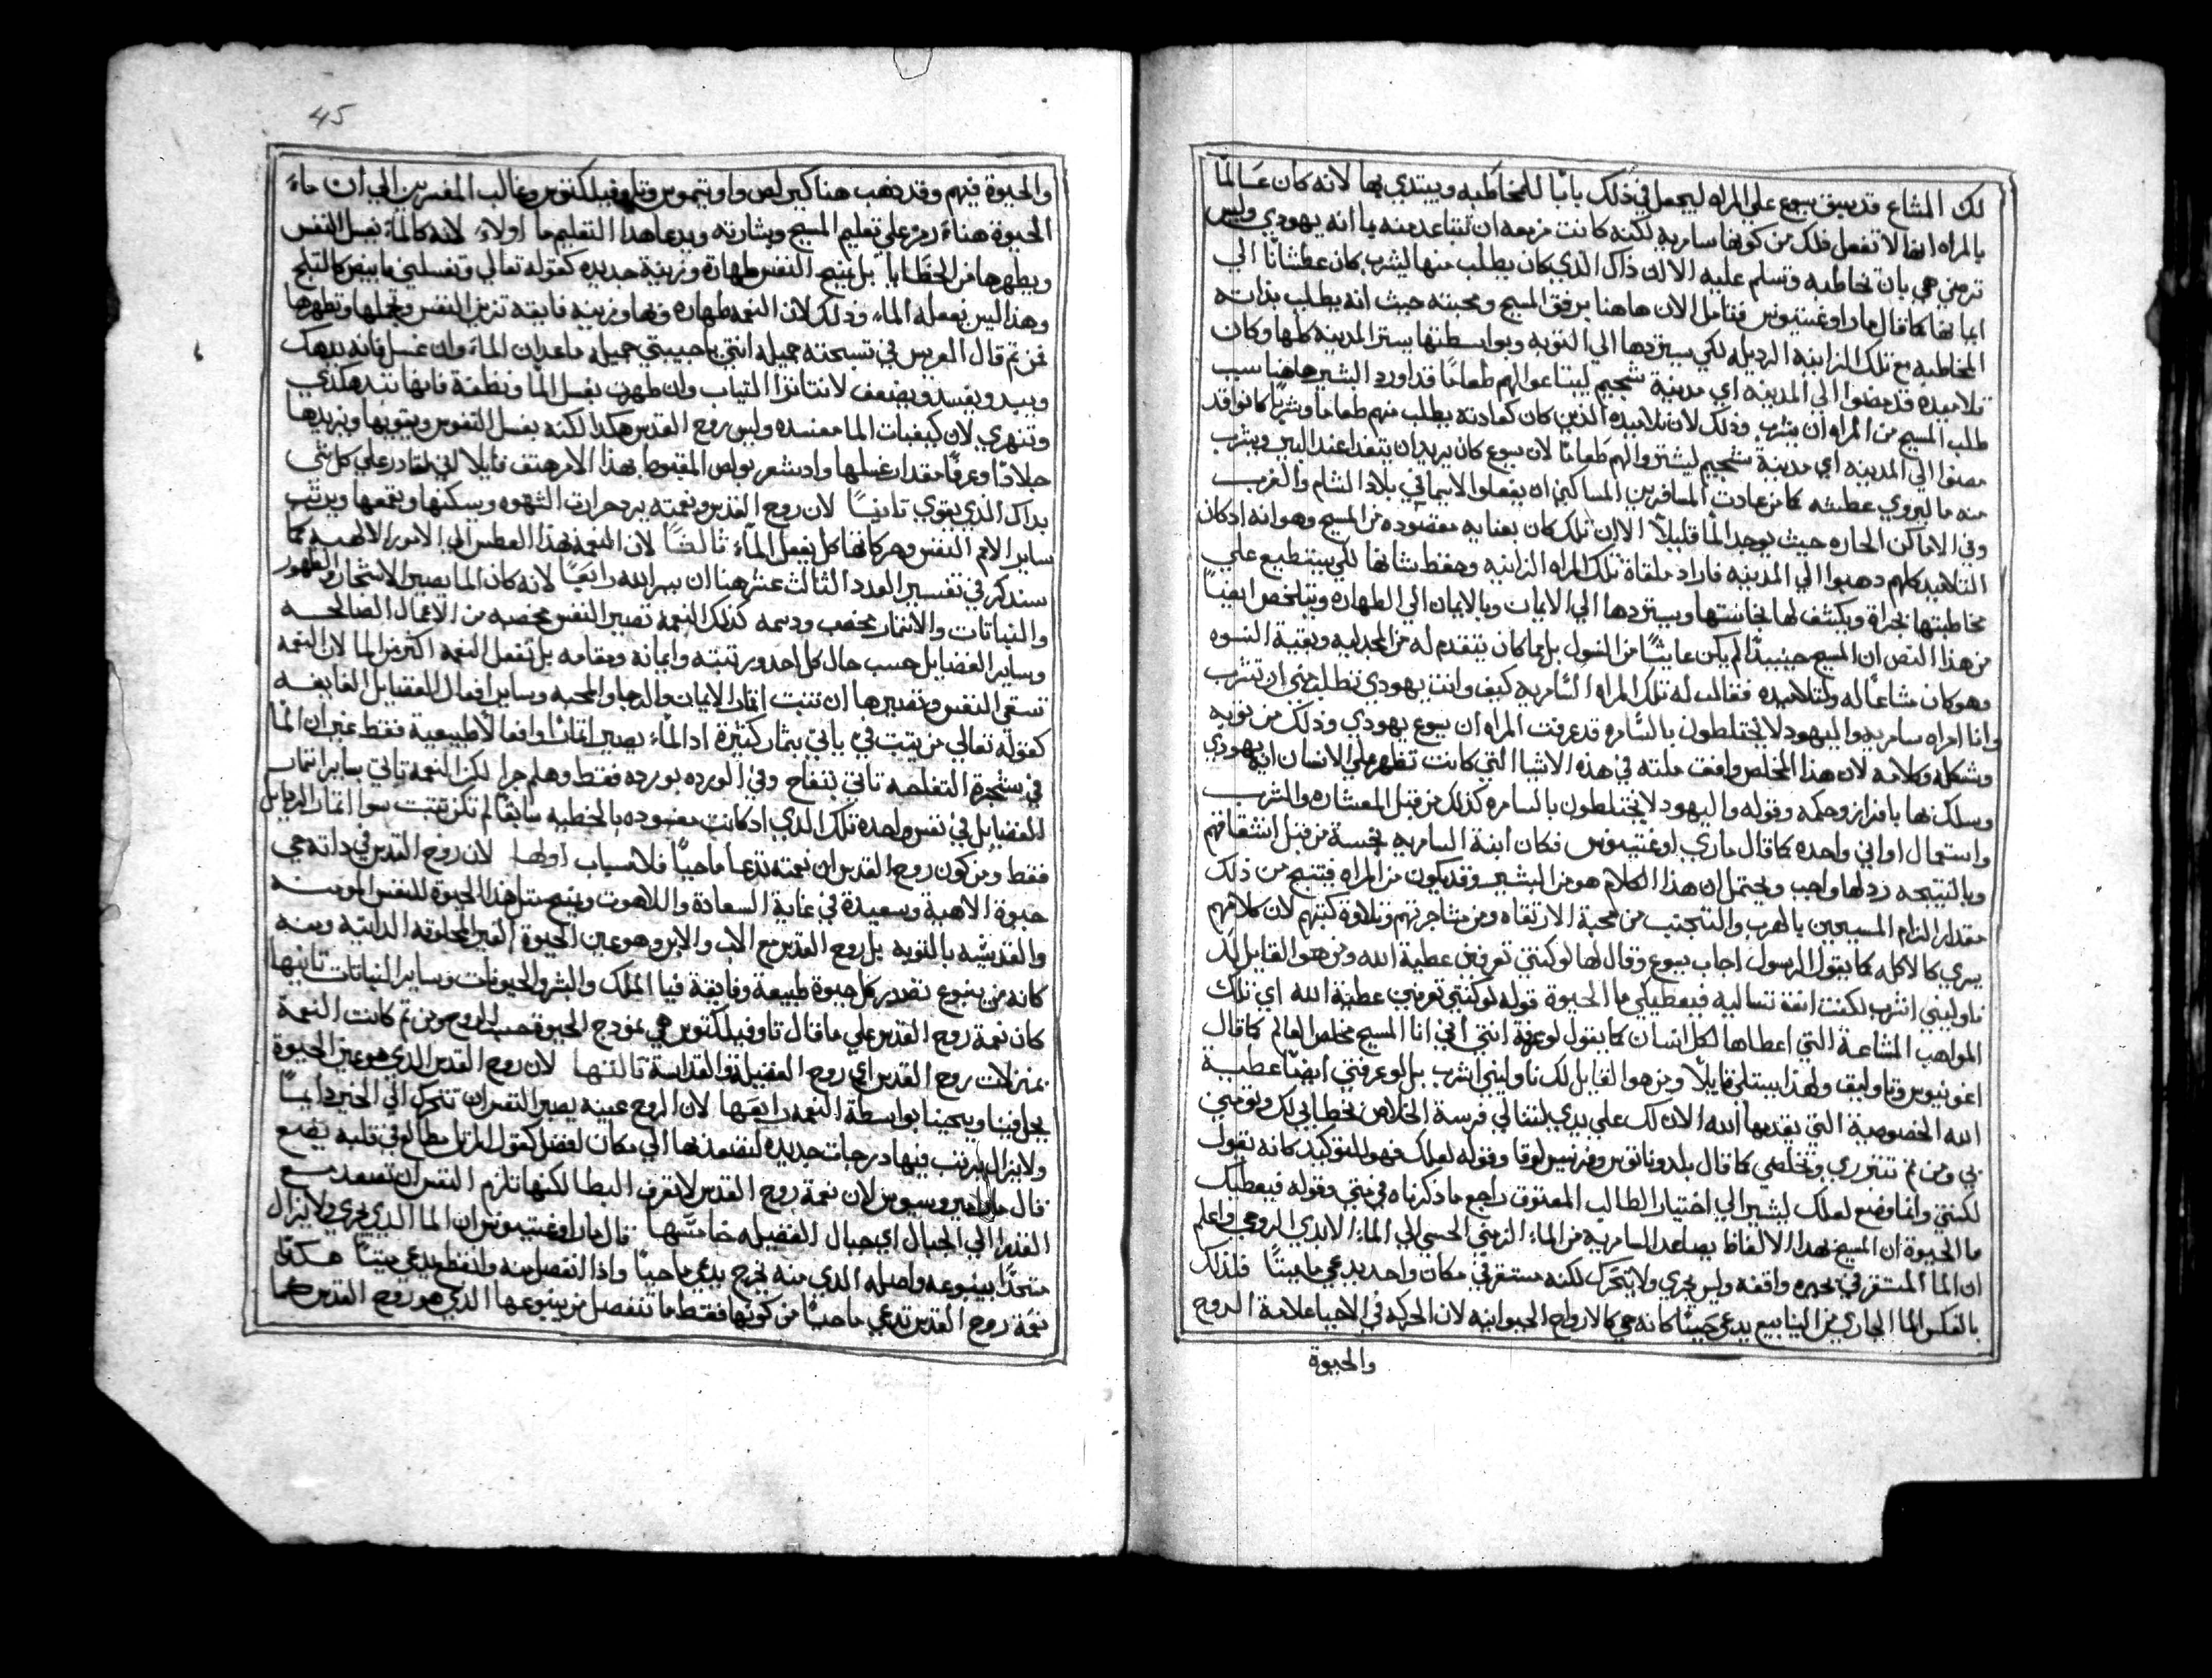 لك المشاع قد سبق يسوع علي المراه ليجعل في ذلك بابًا للمخاطبه ويبتدي بها لانه كان عالمًا
بالمراه انها لا تفعل ذلك من كونها سامريه لكنه كانت مزمعه ان تتباعد منه بما انه يهودي وليس
ترضي هي بان تخاطبه وتسلم عليه الا ان ذاك الذي كان يطلب منها ليشرب كان عطشانًا الي
ايمانها كما قال مار اوغسطينوس فتامل الان هاهنا برفق المسيح ومحبته حيث انه يطلب بذاته
المخاطبه مع تلك الزانيه الرديله لكي يستردها الي التوبه وبواسطتها يسترد المدينه كلها وكان
تلاميذه قد مضوا الي المدينه اي مدينة شجيم ليبتاعوا لهم طعامًا قد اورد البشير هاهنا سبب
طلب المسيح من المراه ان يشرب وذلك لان تلاميذه الذين كان كعادته يطلب منهم طعامًا وشربًا كانوا قد
مضوا الي المدينه اي مدينة شجيم ليشتروا لهم طعامًا لان يسوع كان يريد ان يتغدا عند البير ويشرب
منه ما ليروي عطشه كما من عادت المسافرين المساكين ان يفعلوا لاسيما في بلاد الشام والغرب
وفي الاماكن الحاره حيث يوجد الما قليلاً الا ان تلك كان بعنايه مقصوده من المسيح وهو انه اذ كان
التلاميذ كلهم ذهبوا الي المدينه فاراد ملقاة تلك المراه الزانيه وحفظ شانها لكي يستطيع علي
مخاطبتها بجراة ويكشف لها نجاستها ويستردها الي الايمان وبالايمان الي الطهاره ويتلخص ايضًا
من هذا النص ان المسيح حينيذ لم يكن عايشًا من التسول بل بما كان يتقدم له من المجدليه وبقية النسوه
وهو كان مشاعًا له ولتلاميذه فقالت له تلك المراه السامريه كيف وانت يهودي تطلب مني ان تشرب
وانا امراه سامريه واليهود لا يختلطون بالسامره قد عرفت المراه ان يسوع يهودي وذلك من ثوبه
وشكله وكلامه لان هذا المخلص وافقت ملته في هذه الاشيا التي كانت تظهر علي الانسان انه يهودي
وسلك بها بافراز وحكمه وقوله واليهود لا يختلطون بالسامره كذلك من قبل المعشاره والشرب
واستعمال اواني واحده كما قال ماري اوغسطينوس فكان انية السامريه نجسة من قبل انشقاقهم
وبالنتيجه ردلها واجب ويحتمل ان هذا الكلام هو من البشير وقد يكون من المراه فيتنج من ذلك
مقدار الزام المسيحيين بالهرب والتجنب من صحبة الارتقاه ومن مشاجرتهم وتلاوة كتبهم لان كلامهم
يسري كالاكله كما يقول الرسول اجاب يسوع وقال لها لو كنتي تعرفين عطية الله ومن هو القايل لك
ناوليني اشرب لكنت انتي تساليه فيعطيكي ما الحيوة قوله لو كنتي تعرفين عطية الله اي تلك
المواهب المشاعة التي اعطاها لكل انسان كما يقول لو عرفة انتي اني انا المسيح مخلص العالم كما قال
اغونيوس وتاوليف ولهذا يبتلي قايلاً ومن هو القايل لك ناوليني اشرب بل لو عرفتي ايضًا عطية
الله الخصوصية التي يقدمها الله الان لك علي يدي لتنالي فرصة الخلاص بخطابي لك وتومني
بي ومن ثم تتبرري وتخلصي كما قال بلدوناتوس وفرنسيس لوقا وقوله لعلك فهو للتوكيد كانه يقول
لكنتي وانما وضع لعلك ليشير الي اختيار الطالب المعتوق راجع ما ذكرناه في متي وقوله فيعطيك
ما الحيوة ان المسيح بهذا الالفاظ يصاعد السامريه من الماء الزمني الحسي الي الماء الابدي الروحي واعلم
ان الما المستقر في بحيره واقفه وليس يجري ولا يتحرك لكنه مستقر في مكان واحد يدعي ما ميتًا فلذلك
بالعكس الما الجاري من الينابيع يدعي حييًا كانه حي كالارواح الحيوانيه لان الحركه في الاحيا علامة الروح
والحيوة
45
والحيوة فيهم وقد ذهب هنا كيرلص واوتيموس وتاوفيلكتوس وغالب المفسرين الي ان ماء
الحيوة هنا رمز علي تعليم المسيح وبشارته ويدعا هذا التعليم ما اولاً لانه كالماء يغسل النفس
ويطهرها من الخطايا بل يمنح النفس طهارة وزينة جديده كقوله تعالي وتغسلني فابيض كالثلج
وهذا ليس يفعله الماء وذلك لان النعمه طهاره وبها وزينه فايقه تزين النفس وتجملها وتطهرها
فمن ثم قال العريس في تسبحته جميله انتي يا حبيبتي جميله ماعدا ان الماء وان غسل فانه يدهك
ويبد ويفسد ويضعف لانتانزا الثياب وان طهرت بغسل الما ونظفة فانها تندهكذي
وتنهري لان كيفيات الما مفسده وليس روح القدس هكذا لكنه يغسل النفوس ويقويها ويزيدها
جلادًا وعرفًا مقدار غسلها واذ يشعر بولص المغبوط بهذا الامر هتف قايلا اني لقادر علي كل شي
بذاك الذي يقوي ثانيًا لان روح القدس ونعمته يرد حرارت الشهوه ويسكنها ويقمعها ويرتب
ساير الام النفس وحركاتها كل يفعل الماء ثالثًا لان النعمه تهذا العطش الي الامور الالهيه كما
سنذكر في تفسير العدد الثالث عشر هنا ان سر الله رابعًا لانه كان الما يصير الاشجار والظهور
والنباتات والاثمار مخصب ودسمه كذلك النعمه تصير النفس مخصبه من الاعمال الصالحه
وساير الفضايل حسب حال كل احد ورتبته وايمانه ومقامه بل تفعل النعمه اكثر من الما لان النعمه
تسقي النفس وتصيرها ان تنبت اثمار الايمان والرجا والمحبه وساير افعال الفضايل الفايقه
كقوله تعالي من يثبت في ياتي بثمار كثيرة اذ الماء يصير اثمارًا وافعالاً طبيعية فقط غير ان الما
في شجرة التفاحه تاتي بتفاح وفي الورده بورده فقط وهلم جرا لكن النعمه تاتي بساير اثمار
الفضايل في نفس واحده تلك الذي اذ كانت مفسوده بالخطيه سابقًا لم تكن تنبت سوا اثمار الرذايل
فقط ومن كون روح القدس ان نعمته تدعا ما حيًا فلاسباب اولها لان روح القدس في ذاته حي
حيوة الاهية وسعيدة في غاية السعادة واللاهوت ويمنح مثل هذا الحيوة للنفس المومنه
والقديسه بالتوبه بل روح القدس مع الاب والابن وهو عين الحيوة الغير المخلوقه الذاتيه ومنه
كانه من ينبوع تصدر كل حيوة طبيعة وفايقة فيا الملك والبشر والحيوانات وساير النباتات ثانيها
كان نعمة روح القدس علي ما قال تاوفيلكتوس هي نموذج الحيوة حسب الروح ومن ثم كانت النعمة
بمنزلت روح القدس اي روح الفضيلة والقداسة ثالثها لان روح القدس الذي هو عين الحيوة
يحل فينا ويحيينا بواسطة النعمه رابعها لان الروح عينه يصير النفس ان تتحرك الي الخير دايمًا
ولا يزال يرتب فيها درجات جديده لتصعد بها الي مكان افضل كقول المرتل مطالع في قلبه يضع
قال مار امبروسيوس لان نعمة روح القدس لا تعرف البطا لكنها تلزم النفس ان تصعد مع
العذرا الي الجبال اي جبال الفضيله خامسها قال مار اوغسطينوس ان الما الذي يجري ولا يزال
متحدًا بينبوعه واصله الذي منه يخرج يدعي ما حيًا واذا انفصل منه وانقطع يدعي ميتًا هكذا
نعمة روح القدس تدعي ما حيًا من كونها فقط ما تنفصل من ينبوعها الذي هو روح القدس كما